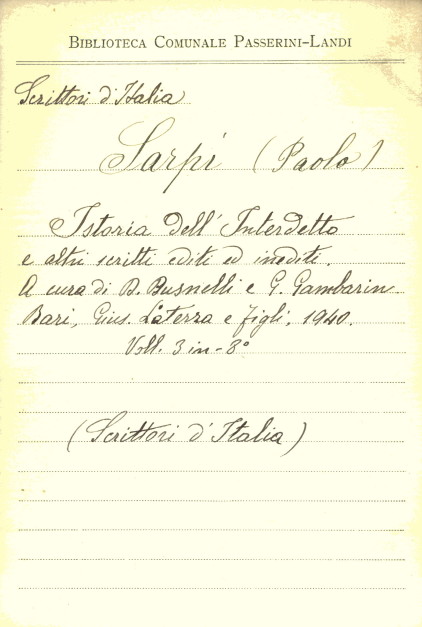 BIBLIOTECA COMUNALE PASSERINI-LANDI
Scrittori d'Italia
Sarpi (Paolo)
Istoria dell'Interdetto
e altri scritti editi ed inediti.
A cura di B. Busnelli e G. Gambarin
Bari, Gius. Laterza e figli, 1940.
Voll. 3 in-8°
(Scrittori d'Italia)